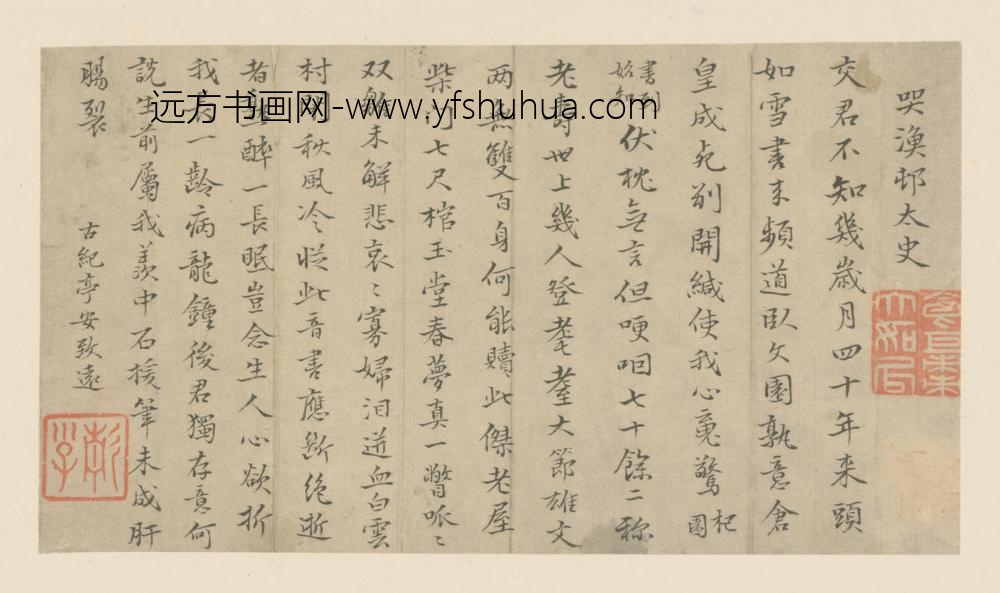 哭漁邨太史
交君不知幾歲月四十年来頭
如雪書来頻道臥文園孰意倉
皇成死別開緘使我心䰟驚杞園
書到始知伏枕無言但哽咽七十餘二称
老壽世上幾人登耄耋大節雄文
两無雙百身何能贖此傑老屋
柴門七尺棺玉堂春夢真一瞥呱〻
双雛未解悲哀〻寡婦泪迸血白雲
村 秋風冷從此音書應斷絶逝
者 醉一長眠豈念生人心欲折
我 一齡病龍鍾後君獨存意何
說生前屬我羨中石援筆未成肝
腸裂
古紀亭安致遠
远方书画网-www.yfshuhua.com